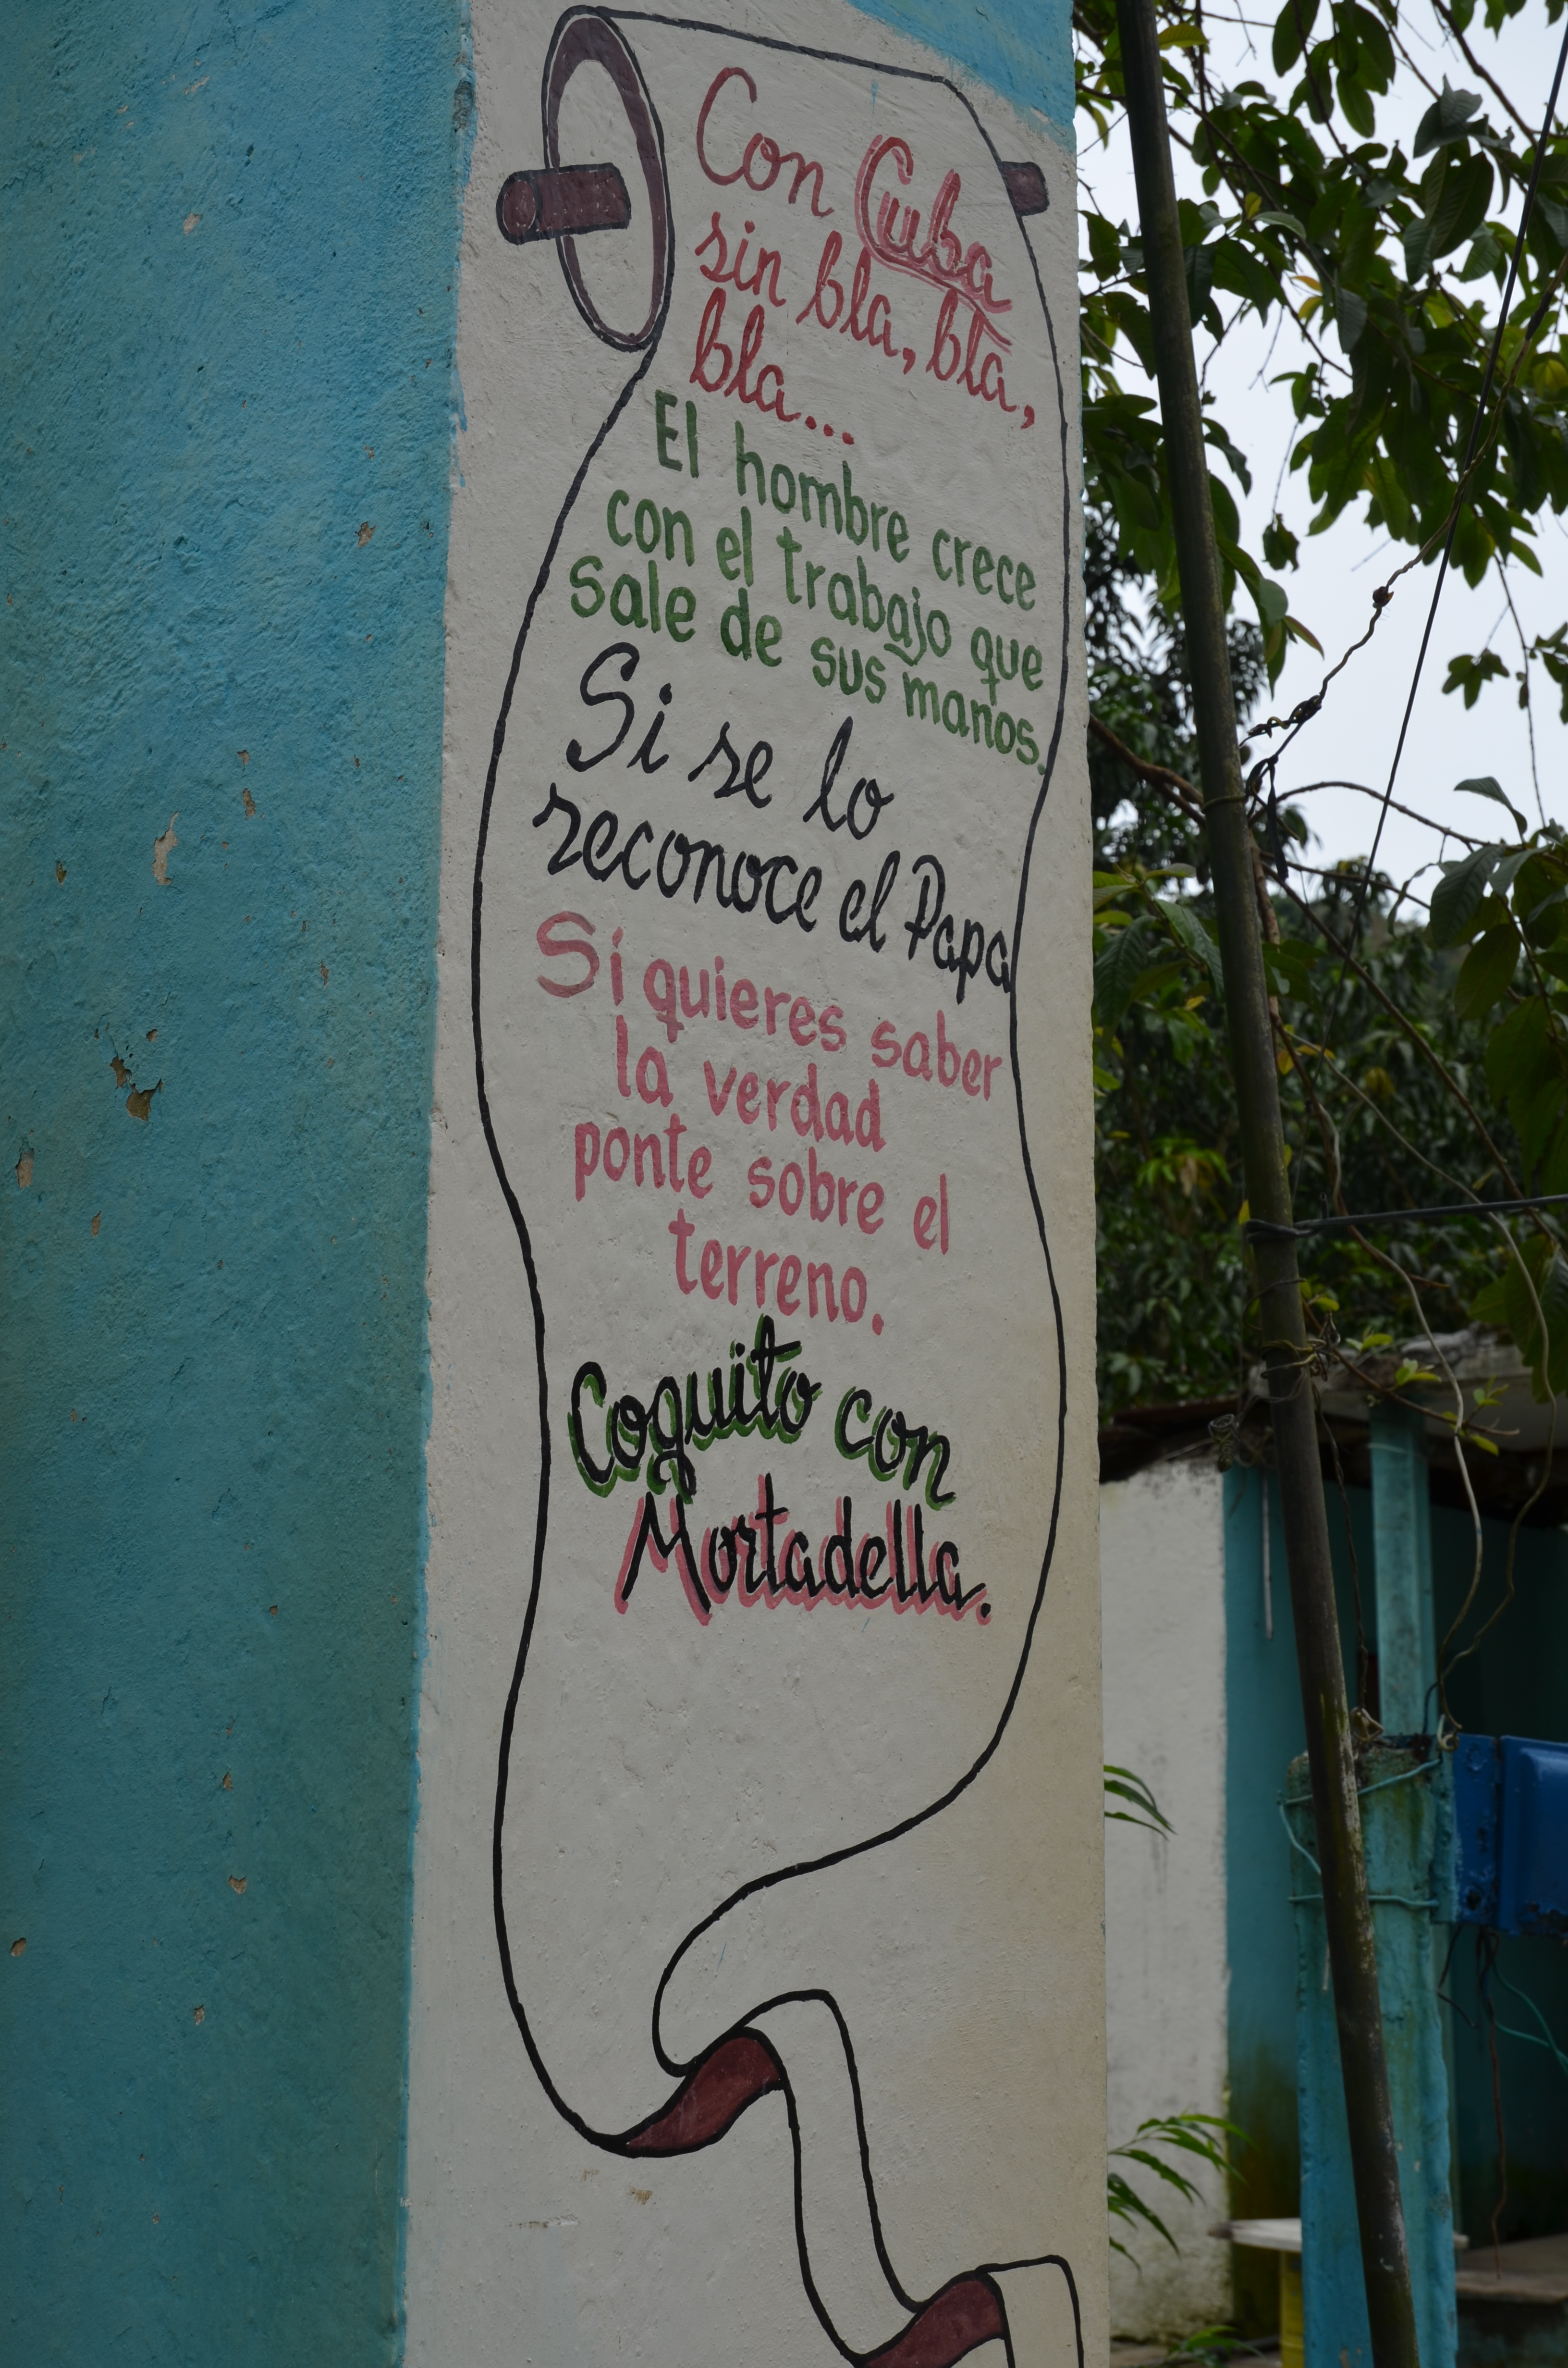 Con Cuba
sin bla, bla,
bla...
El hombre crece
con el trabajo que
sale de sus manos.
Si se lo
reconoce el Papa
Si quieres saber
la verdad
ponte sobre el
terreno.
Coquito con
Mortadella.